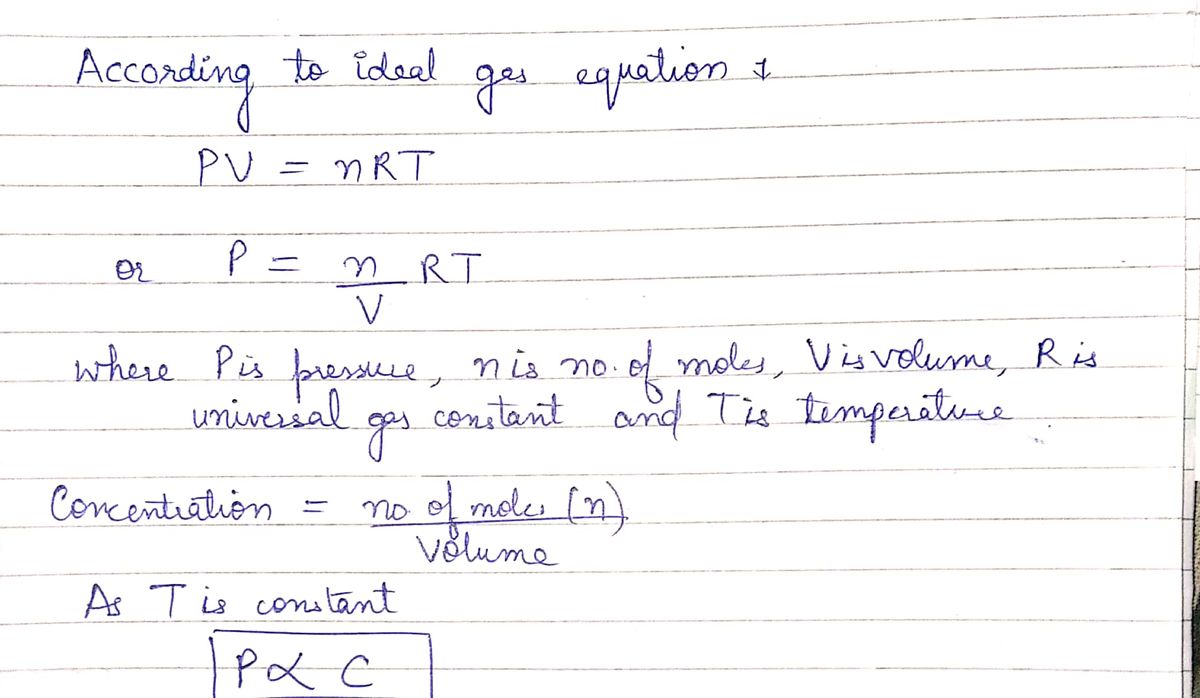 According to ideal gas equation :
PV = nRT
or P = n/V RT
where P is pressure, n is no. of moles, V is volume, R is
universal gas constant and T is temperature
Concentration = no. of moles (n) / Volume
As T is constant
P ∝ C